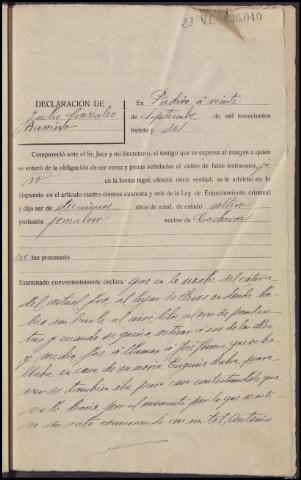 23 VI
DECLARACION DE
Julio Gonzalez
Ramiro
En Padrón á veinte
de Septiembre de mil novecientos
treinta y dos
Compareció ante el Sr. Juez y mi Secretario, el testigo que se expresa al margen a quien
se enteró de la obligación de ser veraz y penas señaladas al delito de falso testimonio, ju
ró en la forma legal, ofreció decir verdad, se le advirtió en lo
dispuesto en el artículo cuatro cientos cuarenta y seis de la Ley de Enjuiciamiento criminal
y dijo ser de años de edad, de estado soltero
profesión jornalero vecino de
no fue procesado
Examinado convenientemente declara: que en la noche del catorce
del actual fue al lugar de en donde ha
bia un baile al aire libre
y cuando se queria retirar á eso de las diez
y media fue á llamar á Josefa que se ha
llaba en casa de su novia para
ver si tambien iba para casa contestandole que
no lo hacia por el momento por lo que
un rato con un tal Antonio